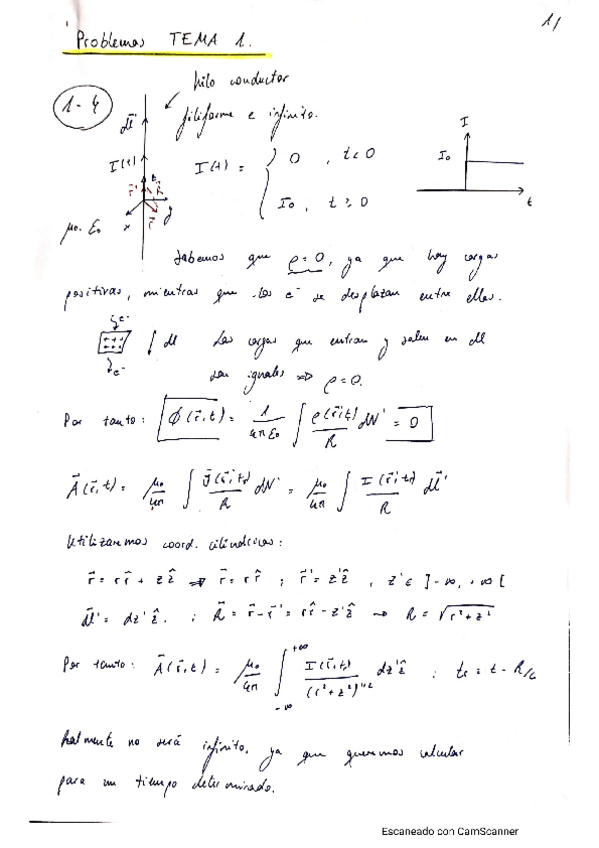 1/
Problemas TEMA 1.
1-4
hilo conductor
filiforme e infinito.
dl'
I(t)
I(t) = { 0 , t < 0
I₀ , t ≥ 0
I
I₀
t
z
r⃗'
R⃗
r⃗
x
y
μ₀, ε₀
Sabemos que ρ = 0, ya que hay cargas
positivas, mientras que los e⁻ se desplazan entre ellas.
e⁻
dl
e⁻
Las cargas que entran y salen en dl
son iguales ⇒ ρ = 0.
Por tanto: Φ(r⃗,t) = 1/(4πε₀) ∫ ρ(r⃗',t)/R dV' = 0
A⃗(r⃗,t) = μ₀/4π ∫ J⃗(r⃗',tr)/R dV' = μ₀/4π ∫ I(r⃗',tr)/R dl⃗'
Utilizaremos coord. cilíndricas:
r⃗ = r r̂ + z ẑ ⇒ r⃗ = r r̂ ; r⃗' = z' ẑ , z' ∈ ]-∞, +∞[
dl⃗' = dz' ẑ. ; R⃗ = r⃗ - r⃗' = r r̂ - z' ẑ → R = √(r² + z²)
Por tanto: A⃗(r⃗,t) = μ₀/4π ∫_{-∞}^{+∞} I(r⃗,t)/(r² + z²)^{1/2} dz' ẑ ; tr = t - R/c
Realmente no será infinito, ya que queremos calcular
para un tiempo determinado.
Escaneado con CamScanner